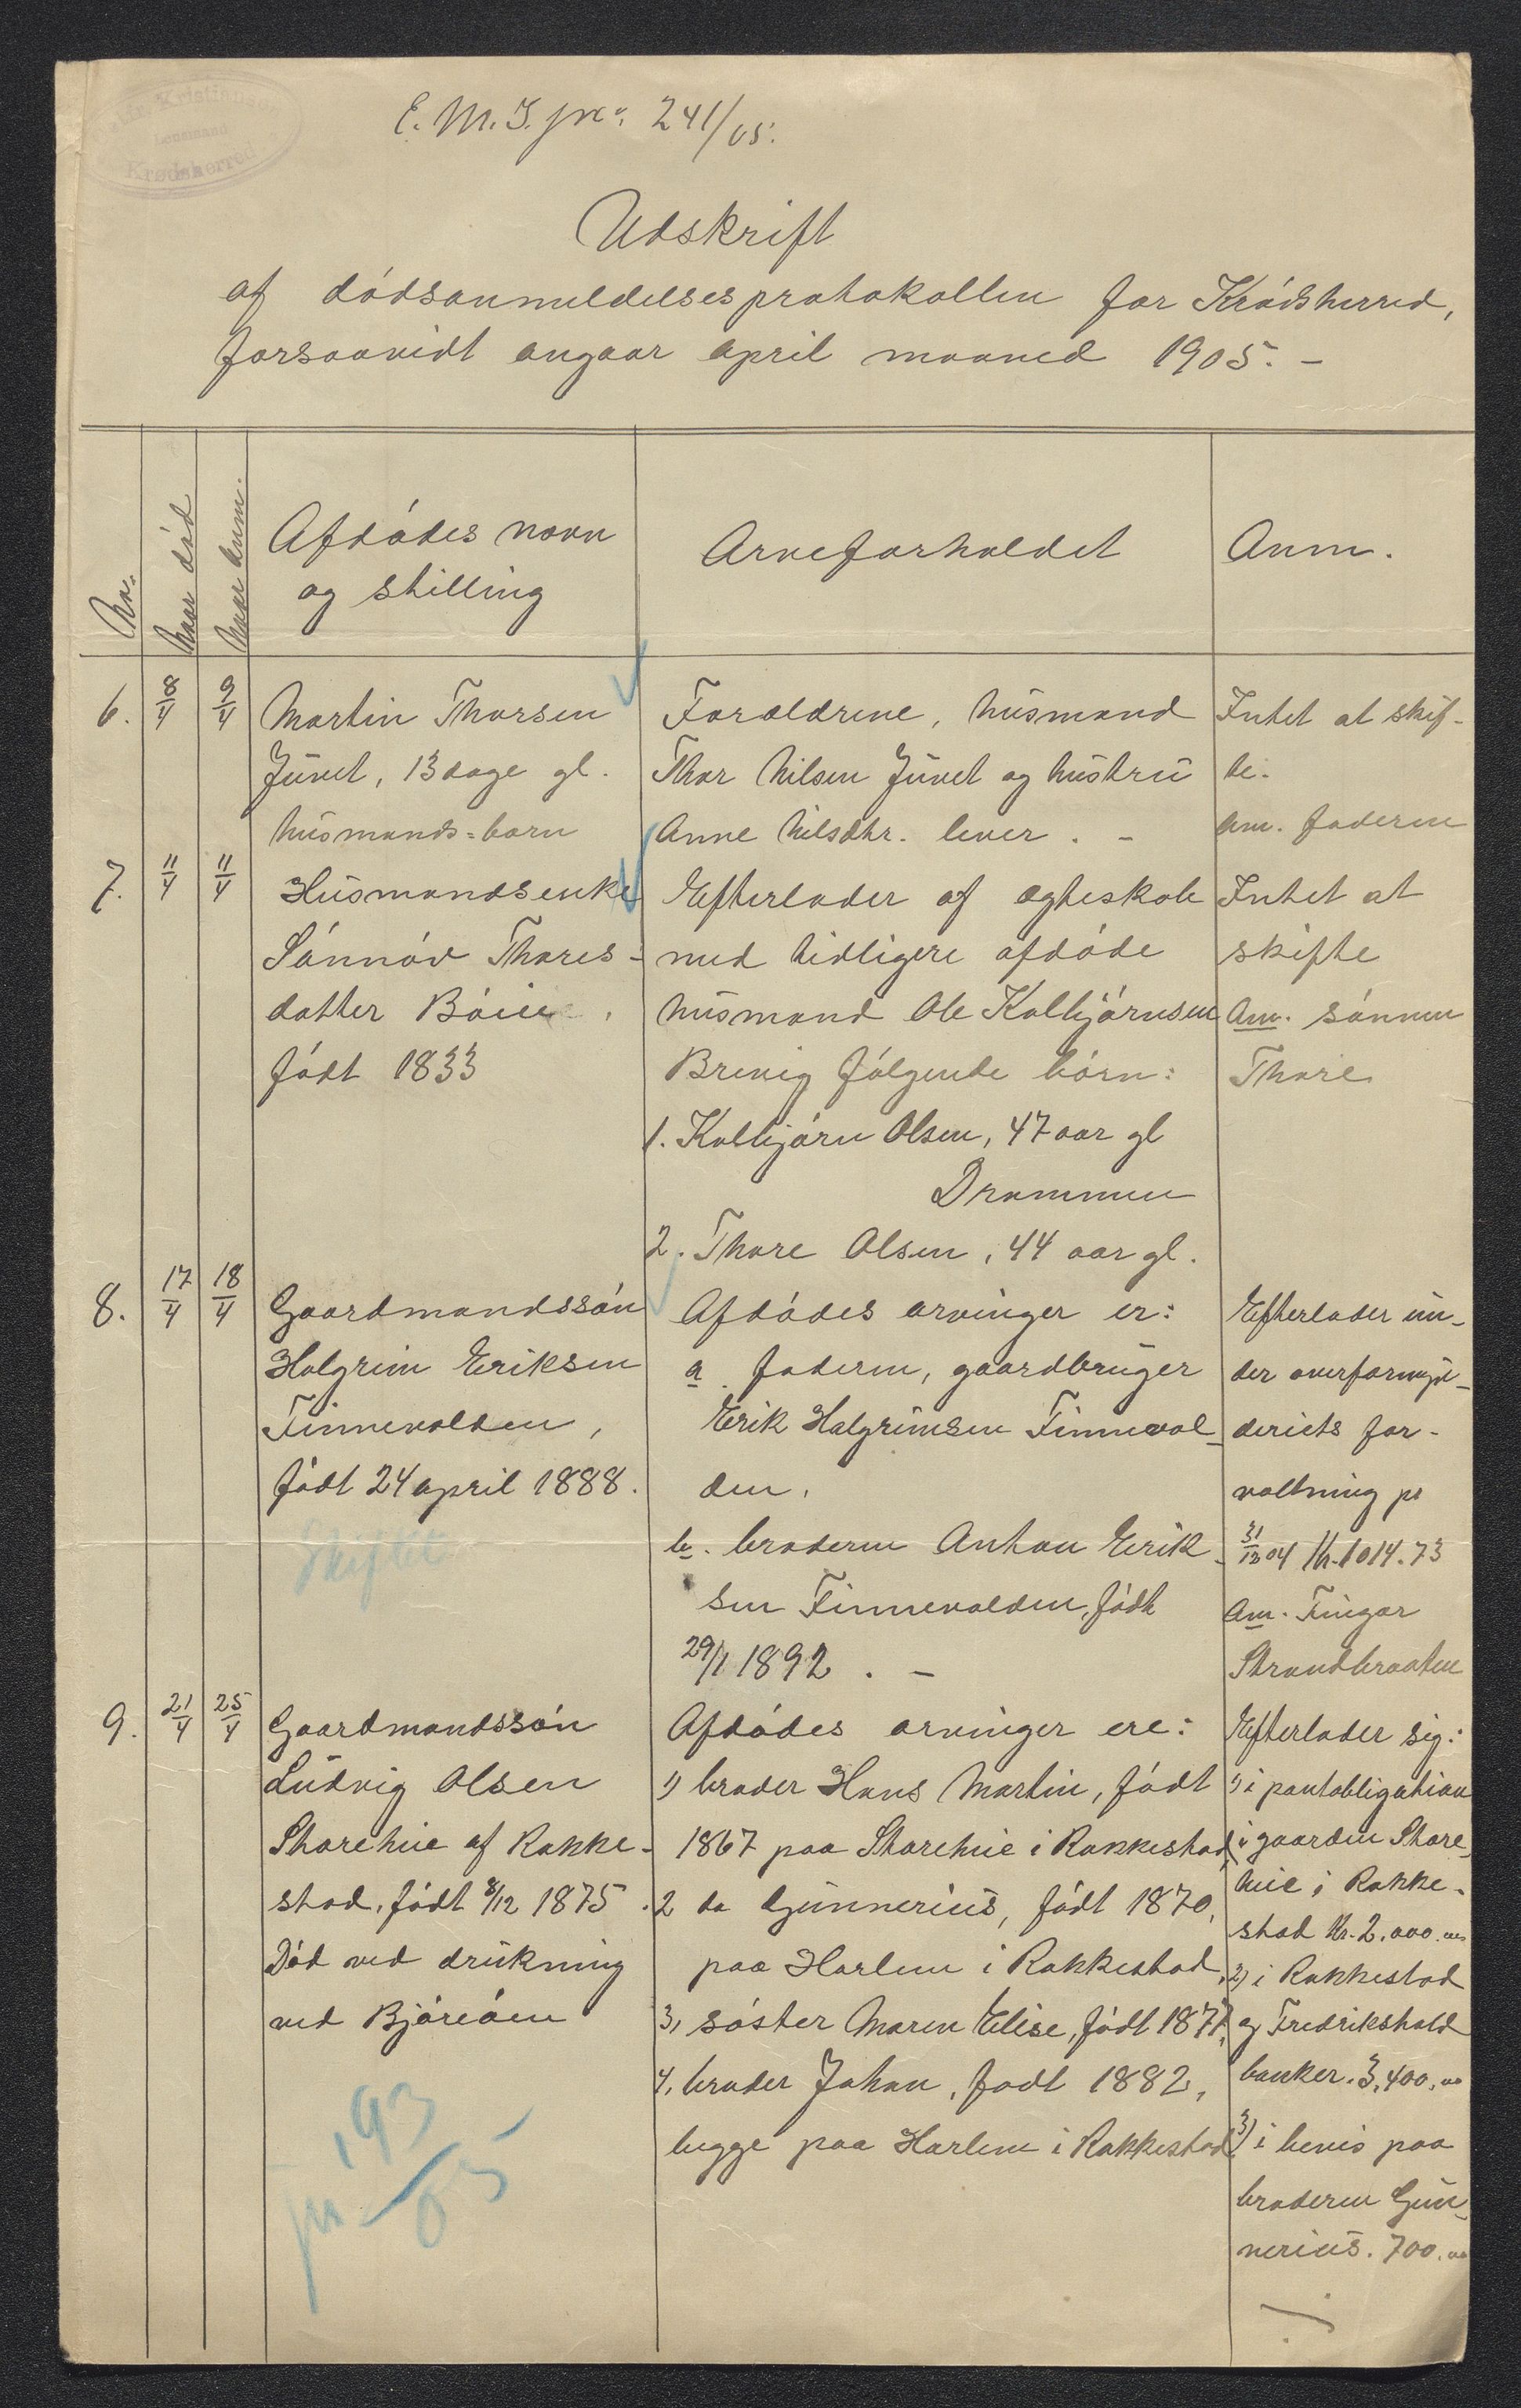 Kristian
Lensmand
Krødsherred
E. M. I. jr. 241/05.
Udskrift
af dødsanmeldelsesprotokollen for Krødsherred,
forsaavidt angaar april maaned 1905. -
No.
Naar død
Naar anm.
Afdødes navn
og stilling
Arveforholdet
Anm.
6.
8/4
9/4
Martin Thorsen
Juvet, 13 dage gl.
husmands=barn
Forældrene, husmand
Thor Nilsen Juvet og hustru
Anne Nilsdtr. lever. -
Intet at skif-
te.
Am. faderen
7.
11/4
11/4
Husmandsenke
Sønnøv Thores-
datter Bøie,
født 1833
Efterlader af ægteskab
med tidligere afdøde
husmand Ole Kolbjørnsen
Brenig følgende børn:
1. Kolbjørn Olsen, 47 aar gl
Drammen
2. Thore Olsen, 44 aar gl.
Intet at
skifte
Am. sønnen
Thore
8.
17/4
18/4
Gaardmandssøn
Halgrim Eriksen
Finnevolden,
født 24 april 1888.
Skiftet
Afdødes arvinger er:
a. faderen, gaardbruger
Erik Halgrimsen Finnevol-
den.
b. broderen Anton Erik-
sen Finnevolden, født
29/1 1892. -
Efterlader un-
der overformyn-
deriets for-
valtning pr
31/12 04 Kr. 1014.73
Am. Fingar
Strandbraaten
9.
21/4
25/4
Gaardmandssøn
Ludvig Olsen
Storehie af Rakke-
stad, født 8/12 1875.
Død ved drukning
ved Bjøreøen
jr 193/05
Afdødes arvinger ere:
1) broder Hans Martin, født
1867 paa Storehie i Rakkestad,
2 do Gunnerius, født 1870,
paa Harlem i Rakkestad,
3, søster Maren Elise, født 1877,
4, broder Johan, født 1882,
begge paa Harlem i Rakkestad.
Efterlader sig:
1) i pantobligation
i gaarden Store-
hie i Rakke-
stad Kr. 2.000.00
2) i Rakkestad
og Fredrikshald
banker. 3.400.00
3) i bevis paa
broderen Gun-
nerius. 700.00